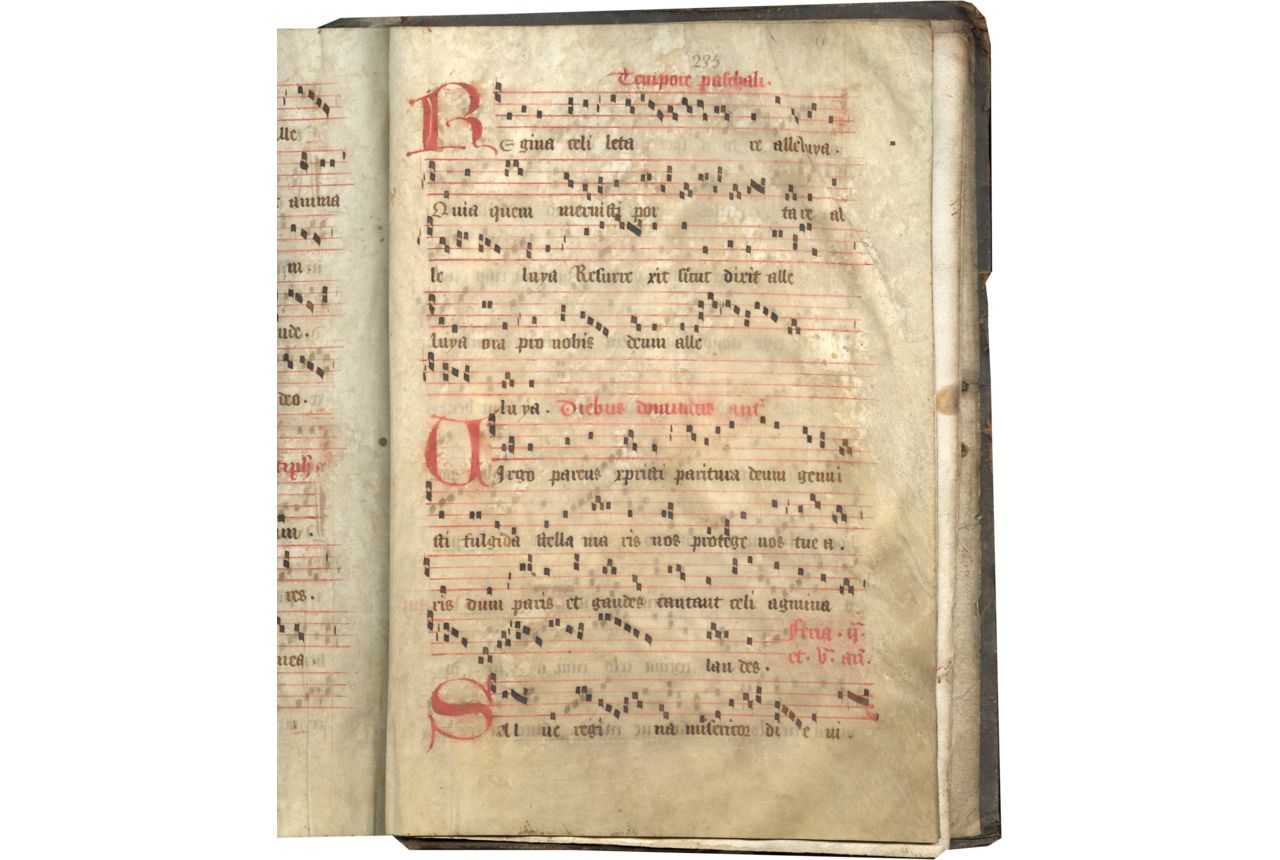 lle
anima
m.
nde.
deo.
m.
res.
nica
235
Tempore paschali.
REgina celi leta re alleluya.
Quia quem meruisti por tare al
le luya Resurre xit sicut dixit alle
luya ora pro nobis deum alle
luya. Diebus dominicis ant
Uirgo parens xpristi paritura deum genui
sti fulgida stella ma ris nos protege nos tue a.
ris dum paris et gaudes cantant celi agmina
lau des. Feria. ij.
et. v. an.
Salue regi na misericor di e ui.